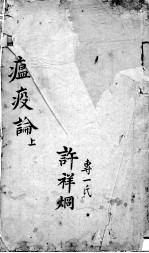 瘟疫論上
許祥烱
專一氏